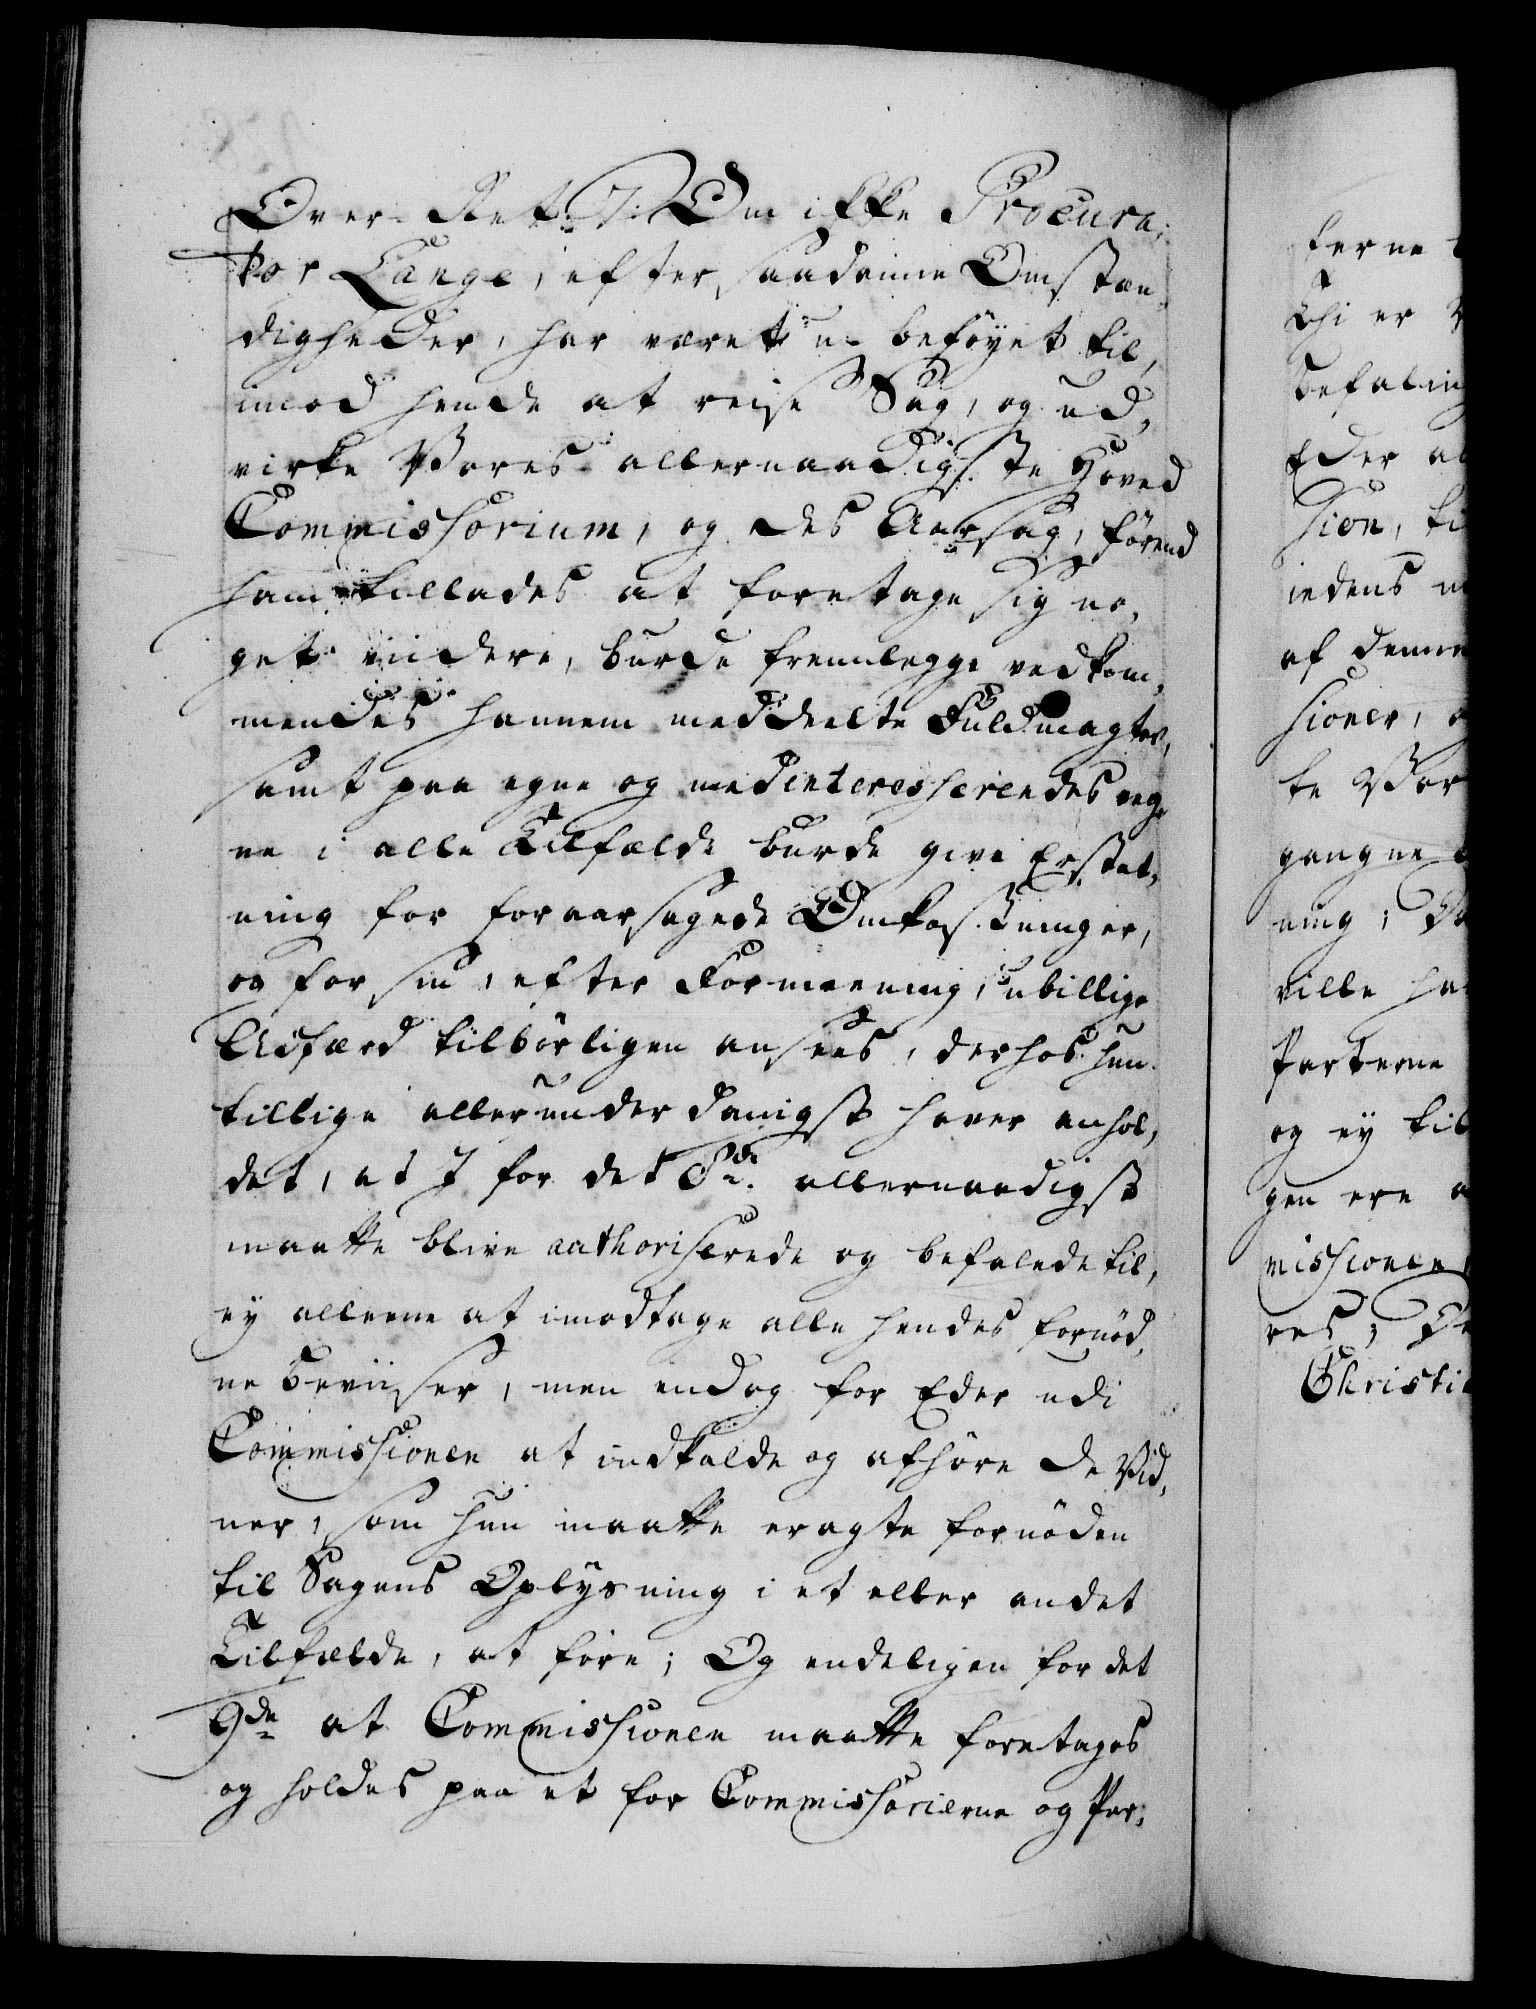 Over-Ret. 7. Om ikke Procura-
tor Lange, efter saadanne Omstæn-
digheder, har været u-beföyet til,
imod hende at reise Sag, og ud-
virke Vores allernaadigste Hoved
Commissorium, og des Aarsag, förend
ham tillades at foretage sig no-
get viidere, burde fremlegge vedkom-
mendes hannem meddeelte Fuldmagter,
samt paa egne og medinteresserendes veg-
ne i alle Tilfælde burde give Erstat-
ning for foraarsagede Omkostninger,
og for sin, efter Formeening, ubillige
Adfærd tilbörligen ansees, derhos hun
tillige allerunderdanigst haver anhol-
det, at I for det 8de allernaadigst
maatte blive authoriserede og befalede til,
ey alleene at imodtage alle hendes fornöd-
ne Beviiser, men endog for Eder udi
Commissionen at indkalde og afhöre de Vid-
ner, som hun maatte eragte fornöden
til Sagens Oplysning i et eller andet
Tilfælde, at före; Og endeligen for det
9de at Commissionen maatte foretages
og holdes paa et for Commissarierne og Par-
terne
Thi er
Befaling
Eder al
sion, ti
iedens
af denne
sioner,
te Vor
gangne
ning;
ville ha
Parterne
og ey til
gen ere
missionen
res;
Christi